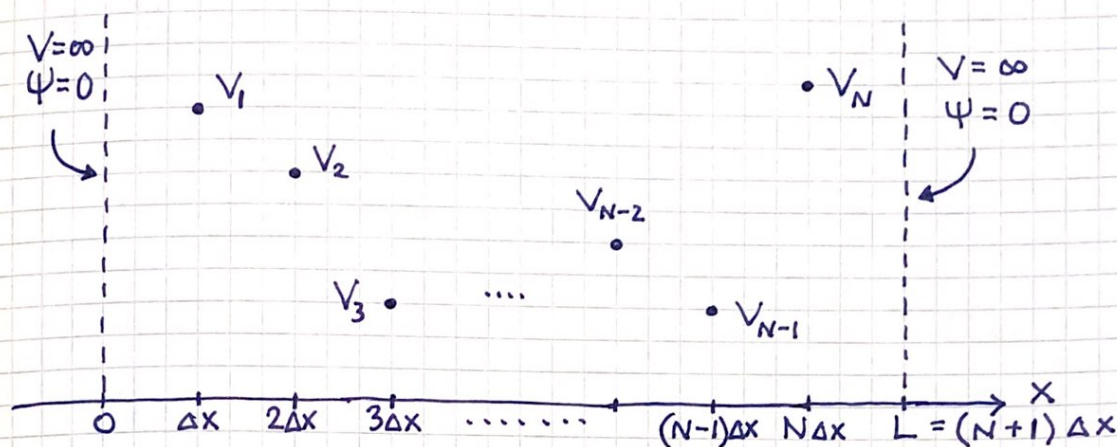 V=∞
Ψ=0
V₁
V₂
V₃
....
V_{N-2}
V_{N-1}
V_N
V = ∞
Ψ = 0
X
0 ΔX 2ΔX 3ΔX ........ (N-1)ΔX NΔX L = (N+1) ΔX